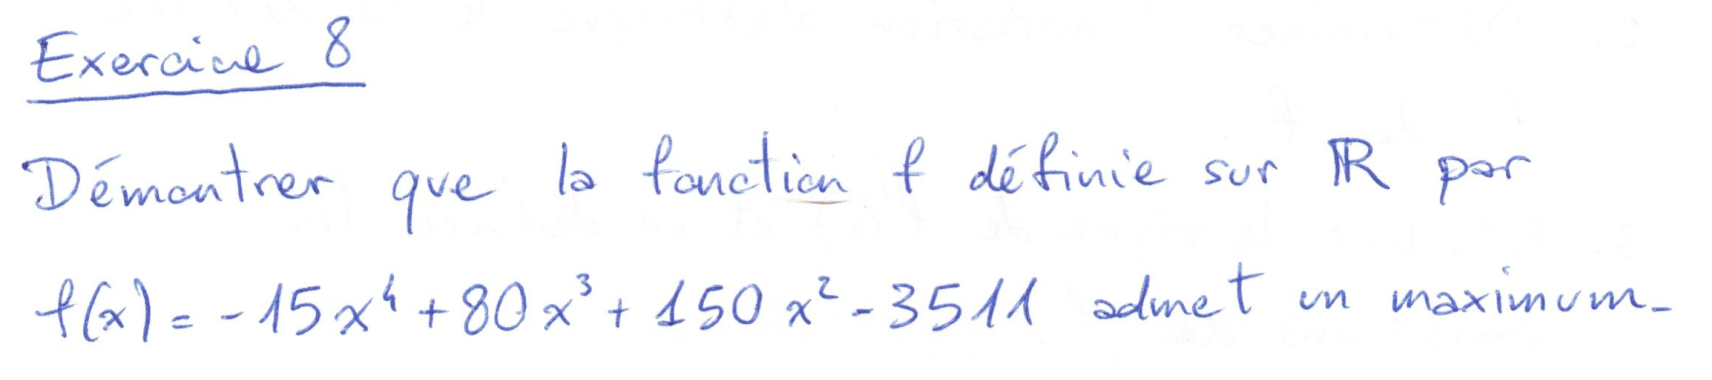 Exercice 8
Démontrer que la fonction f définie sur ℝ par
f(x) = -15x⁴ + 80x³ + 150x² - 3511 admet un maximum.